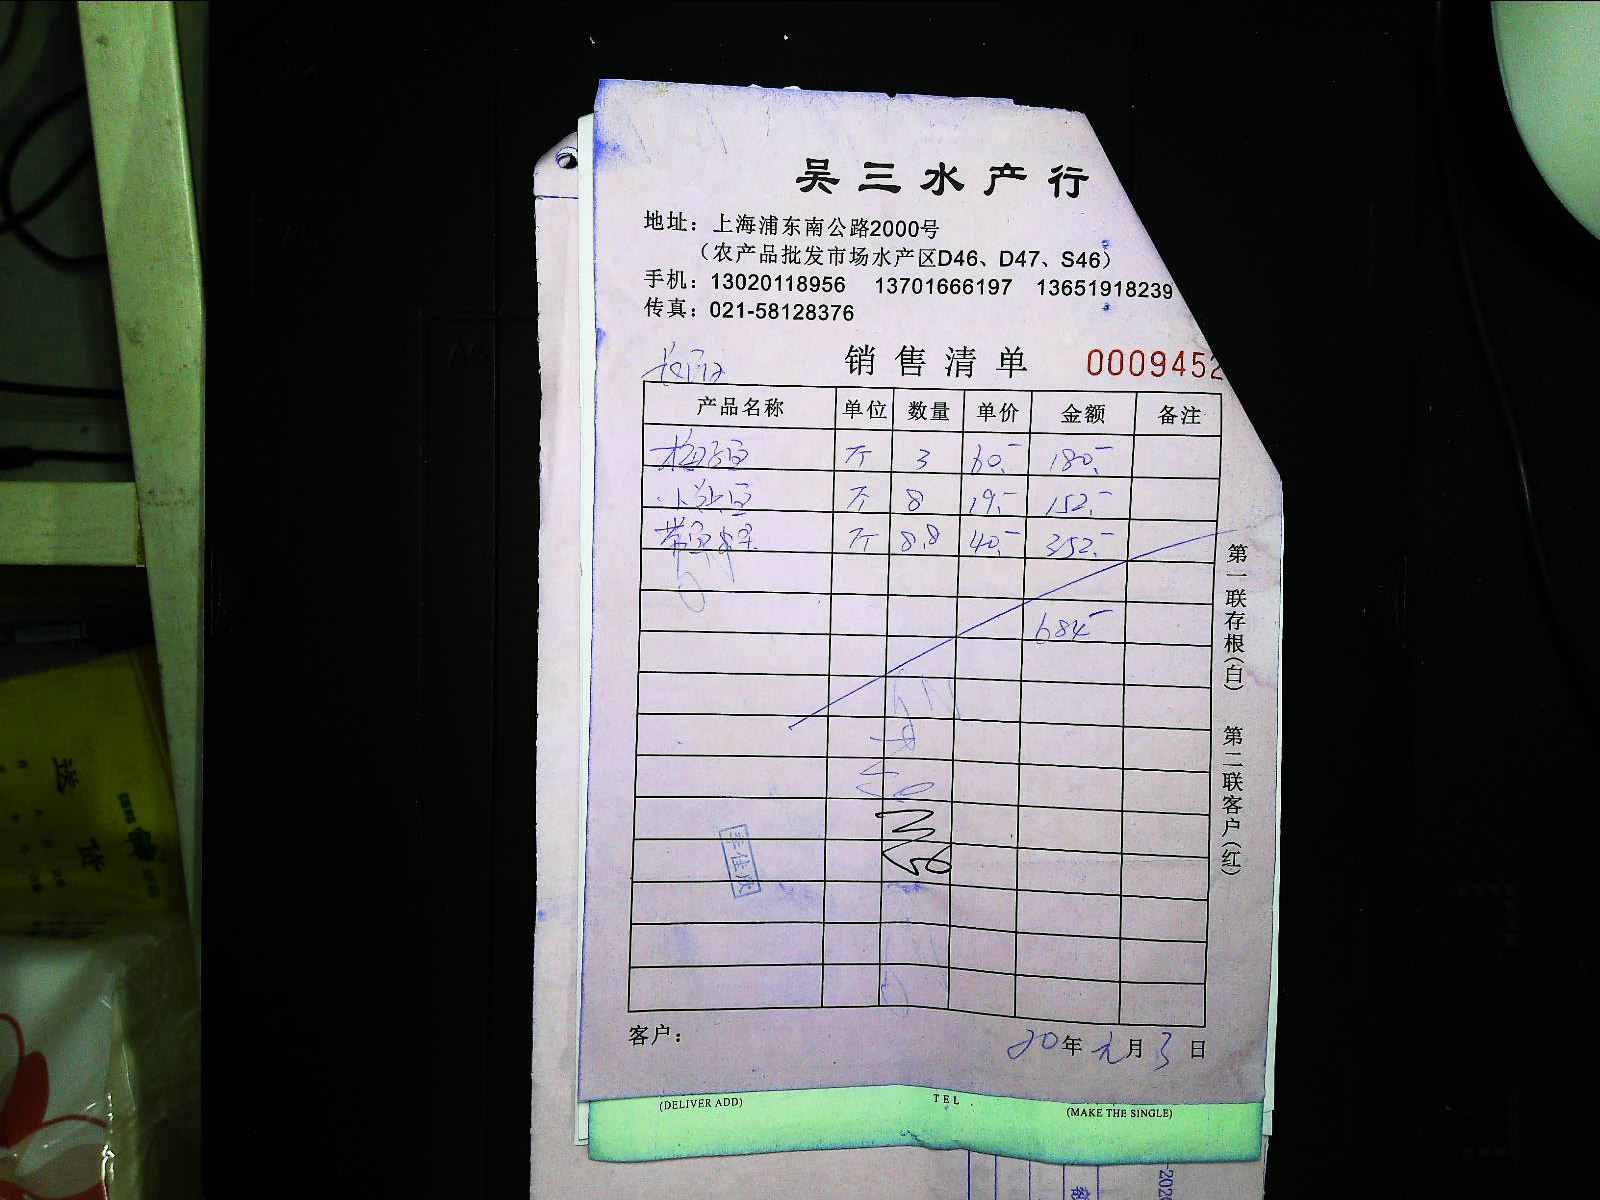 吴三水产行
地址：上海浦东南公路2000号
（农产品批发市场水产区D46、D47、S46）
手机：13020118956 13701666197 13651918239
传真：021-58128376
销售清单 0009452
产品名称 单位 数量 单价 金额 备注
梅子鱼 斤 3 60.- 180.-
小黄鱼 斤 8 19.- 152.-
带鱼 斤 8.8 40.- 352.-
684-
第一联存根(白) 第二联客户(红)
李佳欣
客户：
20年元月3日
(DELIVER ADD) TEL (MAKE THE SINGLE)
送货